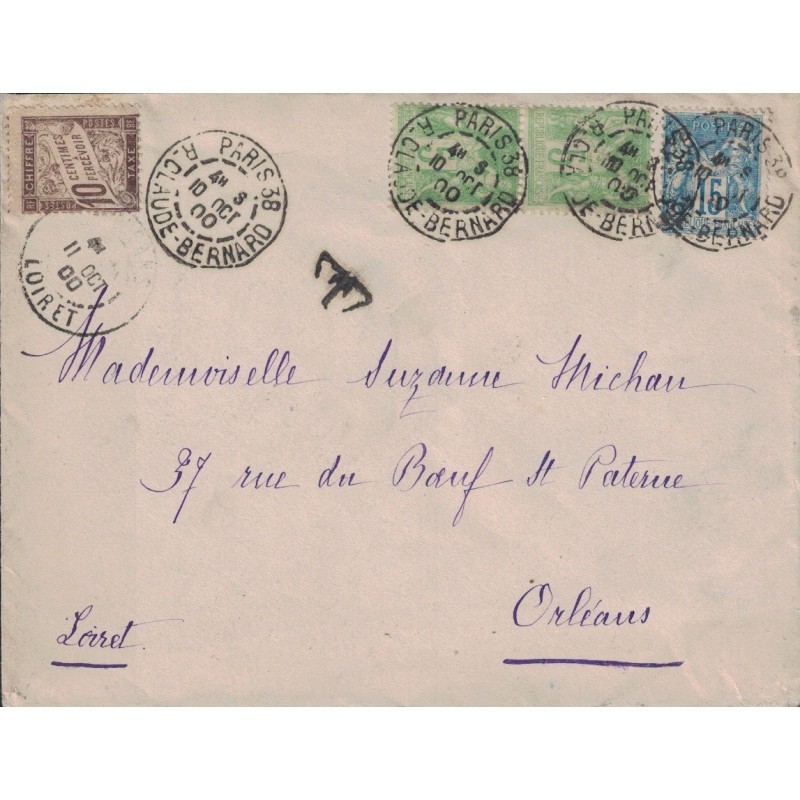 CHIFFRE
POSTES
TAXE
10
CENTIMES
PERCEVOIR
POSTES
PARIS 38
4H S
10 OCT
00
R. CLAUDE-BERNARD
PARIS 38
4H S
10 OCT
00
R. CLAUDE-BERNARD
PARIS
4H
10 OCT
00
BERNARD
15
PARIS 38
BERNARD
11 OCT
00
LOIRET
T
Mademoiselle Suzanne Michau
37 rue du Bœuf St Paterne
Orléans
Loiret.